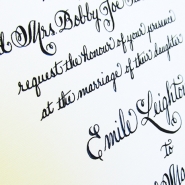 Mrs. Bobby Joe
request the honour of your presence
at the marriage of their daughter
Emile Leighton
to